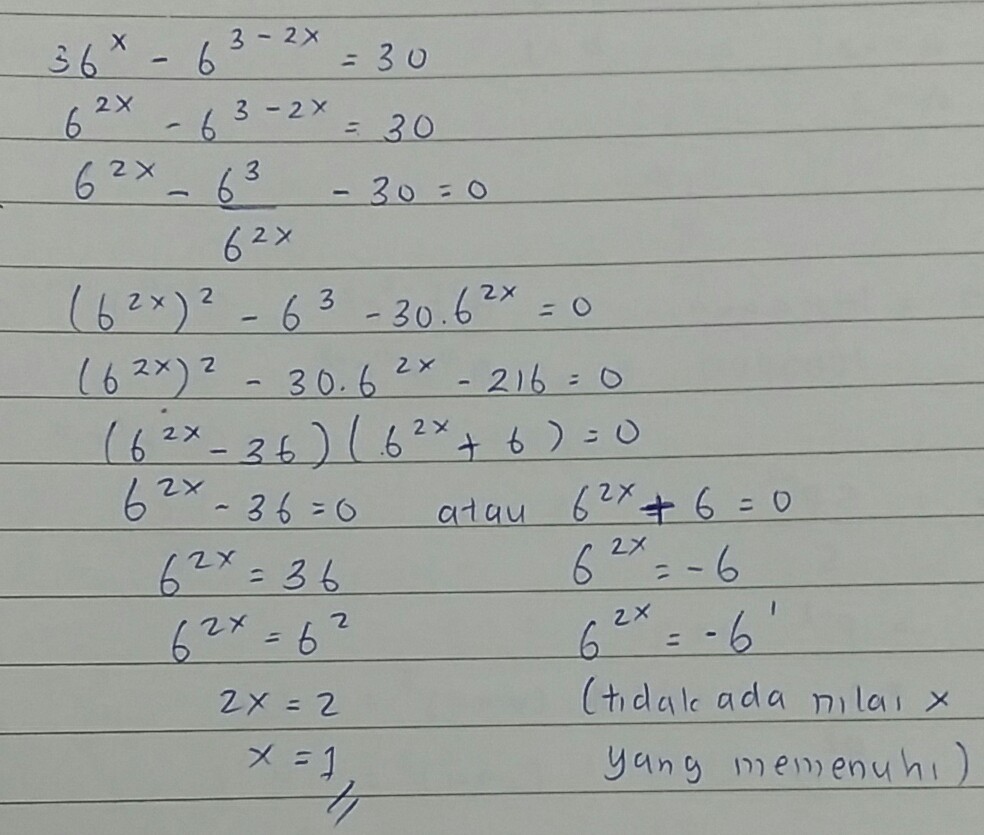 36^x - 6^{3 - 2x} = 30
6^{2x} - 6^{3 - 2x} = 30
6^{2x} - \frac{6^3}{6^{2x}} - 30 = 0
(6^{2x})^2 - 6^3 - 30.6^{2x} = 0
(6^{2x})^2 - 30.6^{2x} - 216 = 0
(6^{2x} - 36)(6^{2x} + 6) = 0
6^{2x} - 36 = 0 atau 6^{2x} + 6 = 0
6^{2x} = 36 6^{2x} = -6
6^{2x} = 6^2 6^{2x} = -6^1
2x = 2 (tidak ada nilai x
x = 1 yang memenuhi)